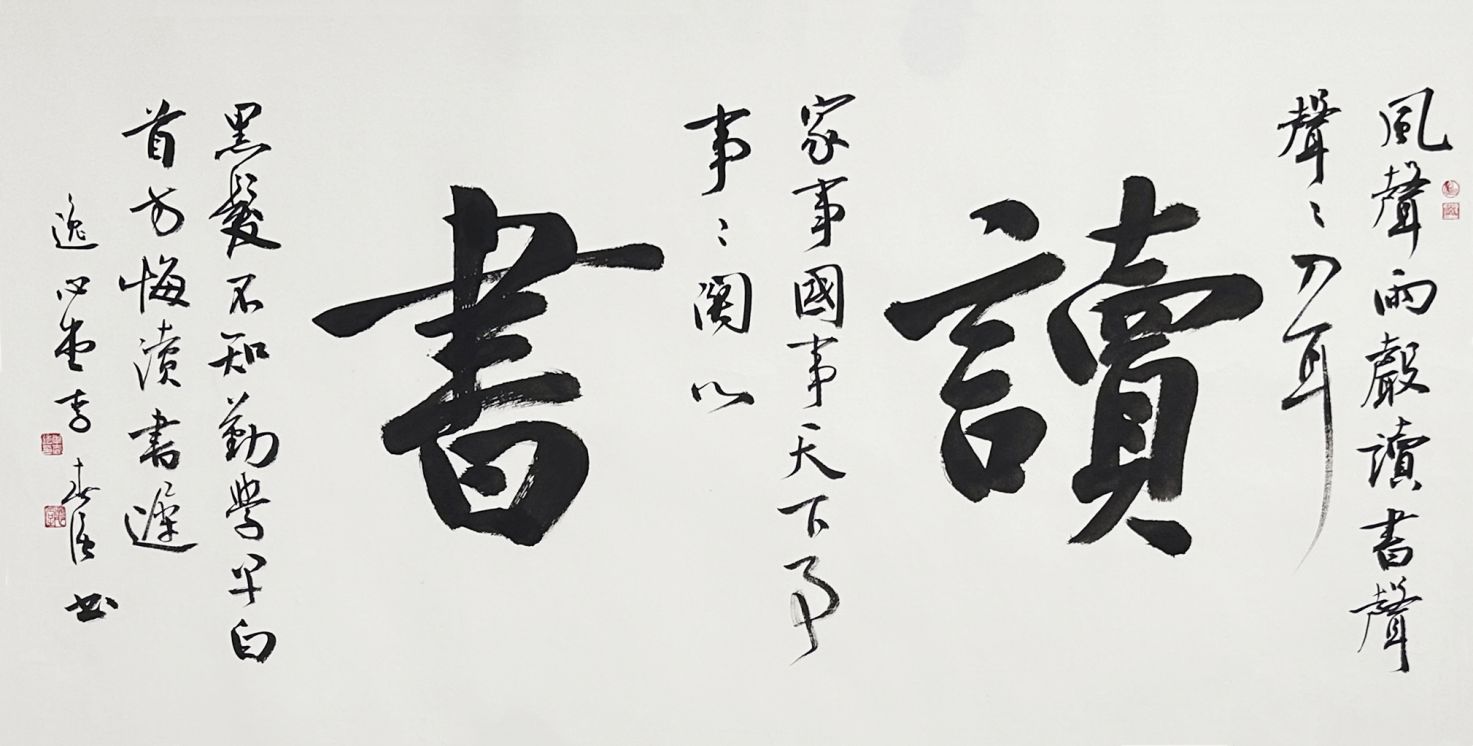 風聲雨聲讀書聲
聲〻入耳
讀
家事國事天下事
事〻關心
書
黑髮不知勤學早白
首方悔讀書遲
逸心堂李春书